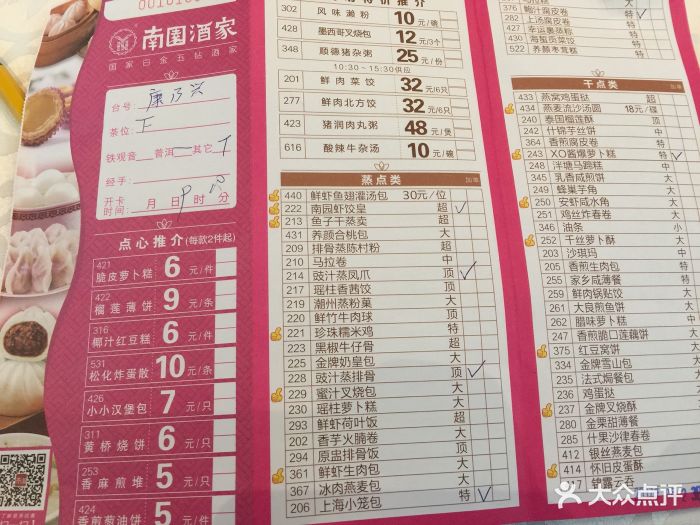 南園酒家
国家白金五钻酒家
台号: 康乃兴
茶位: 正
铁观音 普洱 一 其它
经手:
开卡时间: 月 日 时 分
点心推介(每款2件起)
421 脆皮萝卜糕 6元/件
422 榴莲薄饼 9元/条
316 椰汁红豆糕 6元/件
531 松化炸蛋散 10元/条
426 小小汉堡包 7元/只
311 黄桥烧饼 6元/只
253 香麻煎堆 5元/只
424 香煎葱油饼 5元
302 风味濑粉 10元/碗
428 墨西哥叉烧包 12元/3个
348 顺德猪杂粥 25元/份
10:30-15:30供应
201 鲜肉菜饺 32元/6只
277 鲜肉北方饺 32元/6只
423 猪润肉丸粥 48元/煲
616 酸辣牛杂汤 10元/碗
蒸点类 加單
440 鲜虾鱼翅灌汤包 30元/位
222 南园虾饺皇 超 ✓
213 鱼子干蒸卖 超
431 养颜合桃包 大
209 排骨蒸陈村粉 超
210 马拉卷 中
214 豉汁蒸凤爪 顶 ✓
217 瑶柱香茜饺 顶
219 潮州蒸粉菓 大
220 鲜竹牛肉球 顶
221 珍珠糯米鸡 特
223 黑椒牛仔骨 超
225 金牌奶皇包 大
228 豉汁蒸排骨 顶 ✓
229 蜜汁叉烧包 大
230 瑶柱萝卜糕 大
293 鲜虾荷叶饭 超
202 香芋火腩卷 大
294 原盅排骨饭 顶
361 鲜虾生肉包 大
367 冰肉燕麦包 大
206 上海小笼包 特 ✓
376 鲍汁腐皮卷
282 上汤腐皮卷
427 幸运裹蒸粽
430 海蜇页菜饺
522 养颜枣茸糕
干点类 加單
433 燕窝鸡蛋挞 超
434 燕麦流沙汤圆 18元/碟
240 泰国榴莲酥 顶
242 什锦芋丝饼 中
364 香煎腐皮卷 大
243 XO酱爆萝卜糕 特 ✓
248 泮塘马蹄糕 中
345 乳香咸煎饼 大
249 蜂巢芋角 大
250 安虾咸水角 大
251 鸡丝炸春卷 大
246 油条 小
252 干丝萝卜酥 大
203 沙琪玛 中
205 香煎生肉包 特
255 家乡咸薄餐 特
259 鲜肉锅贴饺 大
261 大良煎鱼饼 大
262 腊味萝卜糕 中
247 香煎脆口莲藕饼 大
375 红豆窝饼 大
234 金牌雪山包 大
235 法式焗餐包 大
236 鸡蛋挞 大
237 金牌叉烧酥 大
280 金栗甜薄餐 大
285 什果沙律春卷 大
412 银丝燕麦包 大
414 怀旧皮蛋酥 大
417 锦露夹卷 大
大众点评